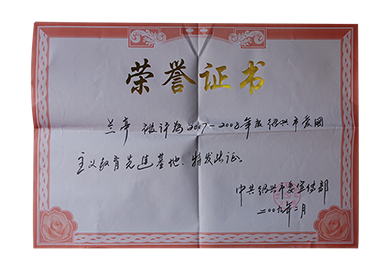 荣誉证书
兰亭 被评为2007-2008年度绍兴市爱国
主义教育先进基地,特发此证。
中共绍兴市委宣传部
二〇〇九年二月